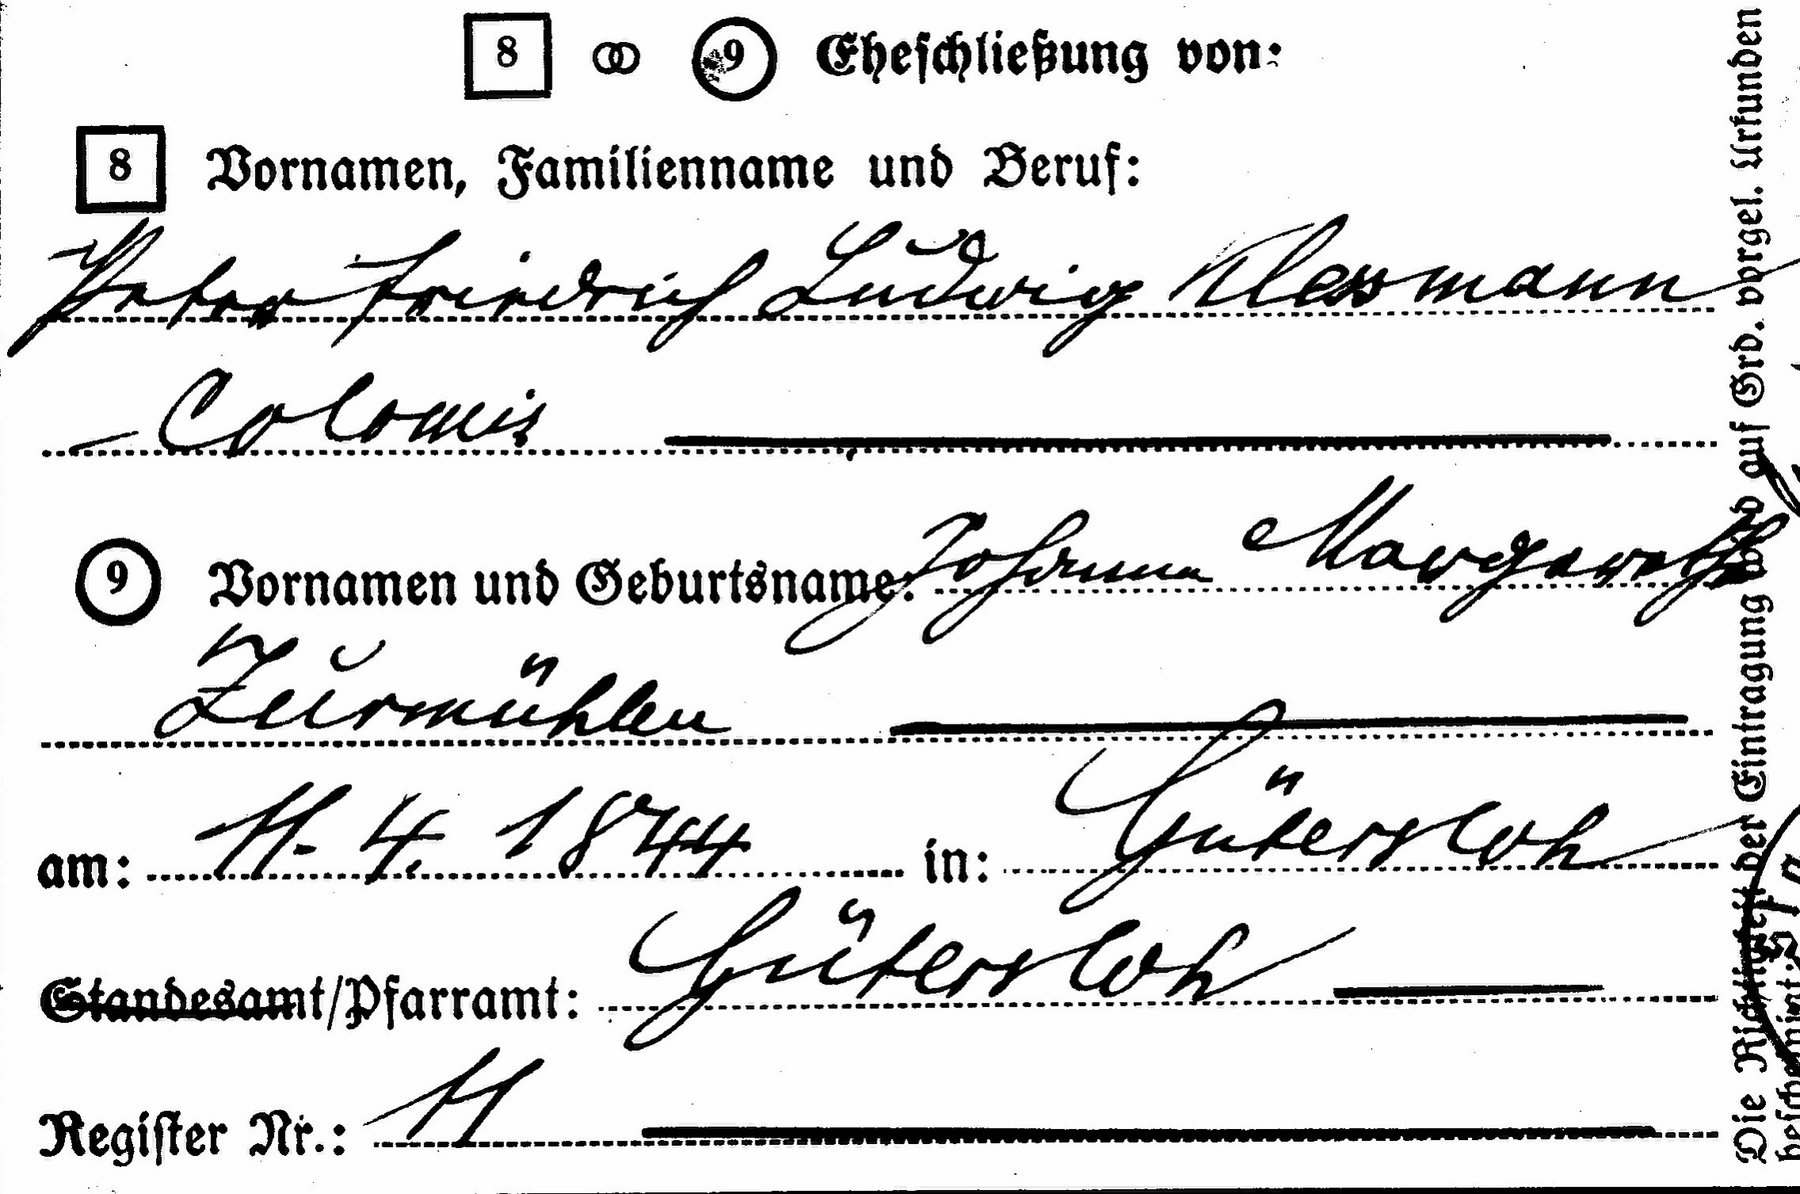 8 ⚭ 9 Eheschließung von:
8 Vornamen, Familienname und Beruf:
Peter Friedrich Ludwig Klessmann
Colonus
9 Vornamen und Geburtsname: Johanna Margareth
Zurmühlen
am: 11. 4. 1844 in: Gütersloh
Standesamt/Pfarramt: Gütersloh
Register Nr.: 11
Die Richtigkeit der Eintragung wird auf Grd. vorgel. Urkunden
bescheinigt: